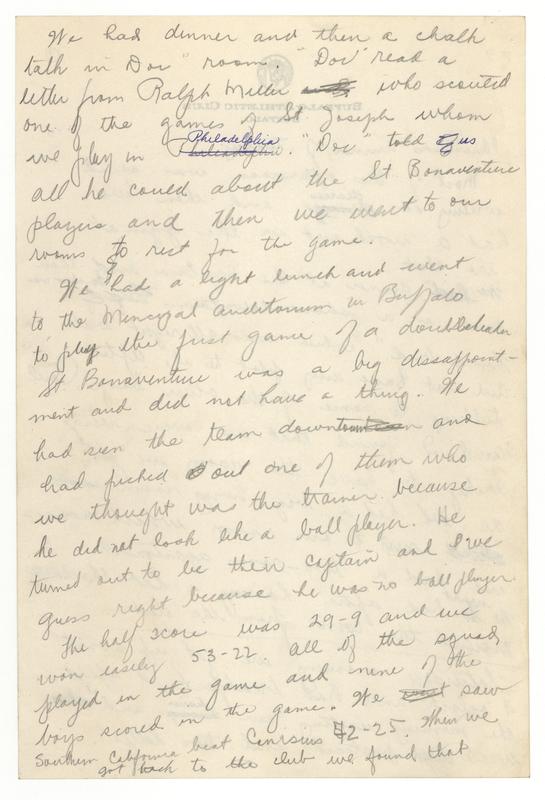 We had dinner and then a chalk
talk in Doc" room. "Doc" read a
letter from Ralph Miller who scouted
one of the games St Joseph whom
we play in Philadelphia. "Doc" told us
all he could about the St Bonaventure
players and then we went to our
rooms to rest for the game.
We had a light lunch and went
to the Municipal auditorium in Buffalo
to play the first game of a doubleheader
St Bonaventure was a big dissappoint-
ment and did not have a thing. We
had seen the team downtown and
had picked out one of them who
we thought was the trainer because
he did not look like a ball player. He
turned out to be their captain and we
guess right because he was no ball player.
The half score was 29-9 and we
won easily 53-22. all of the squad
played in the game and nine of the
boys scored in the game. We saw
Southern California beat Canisius 42-25. When we
got back to the club we found that